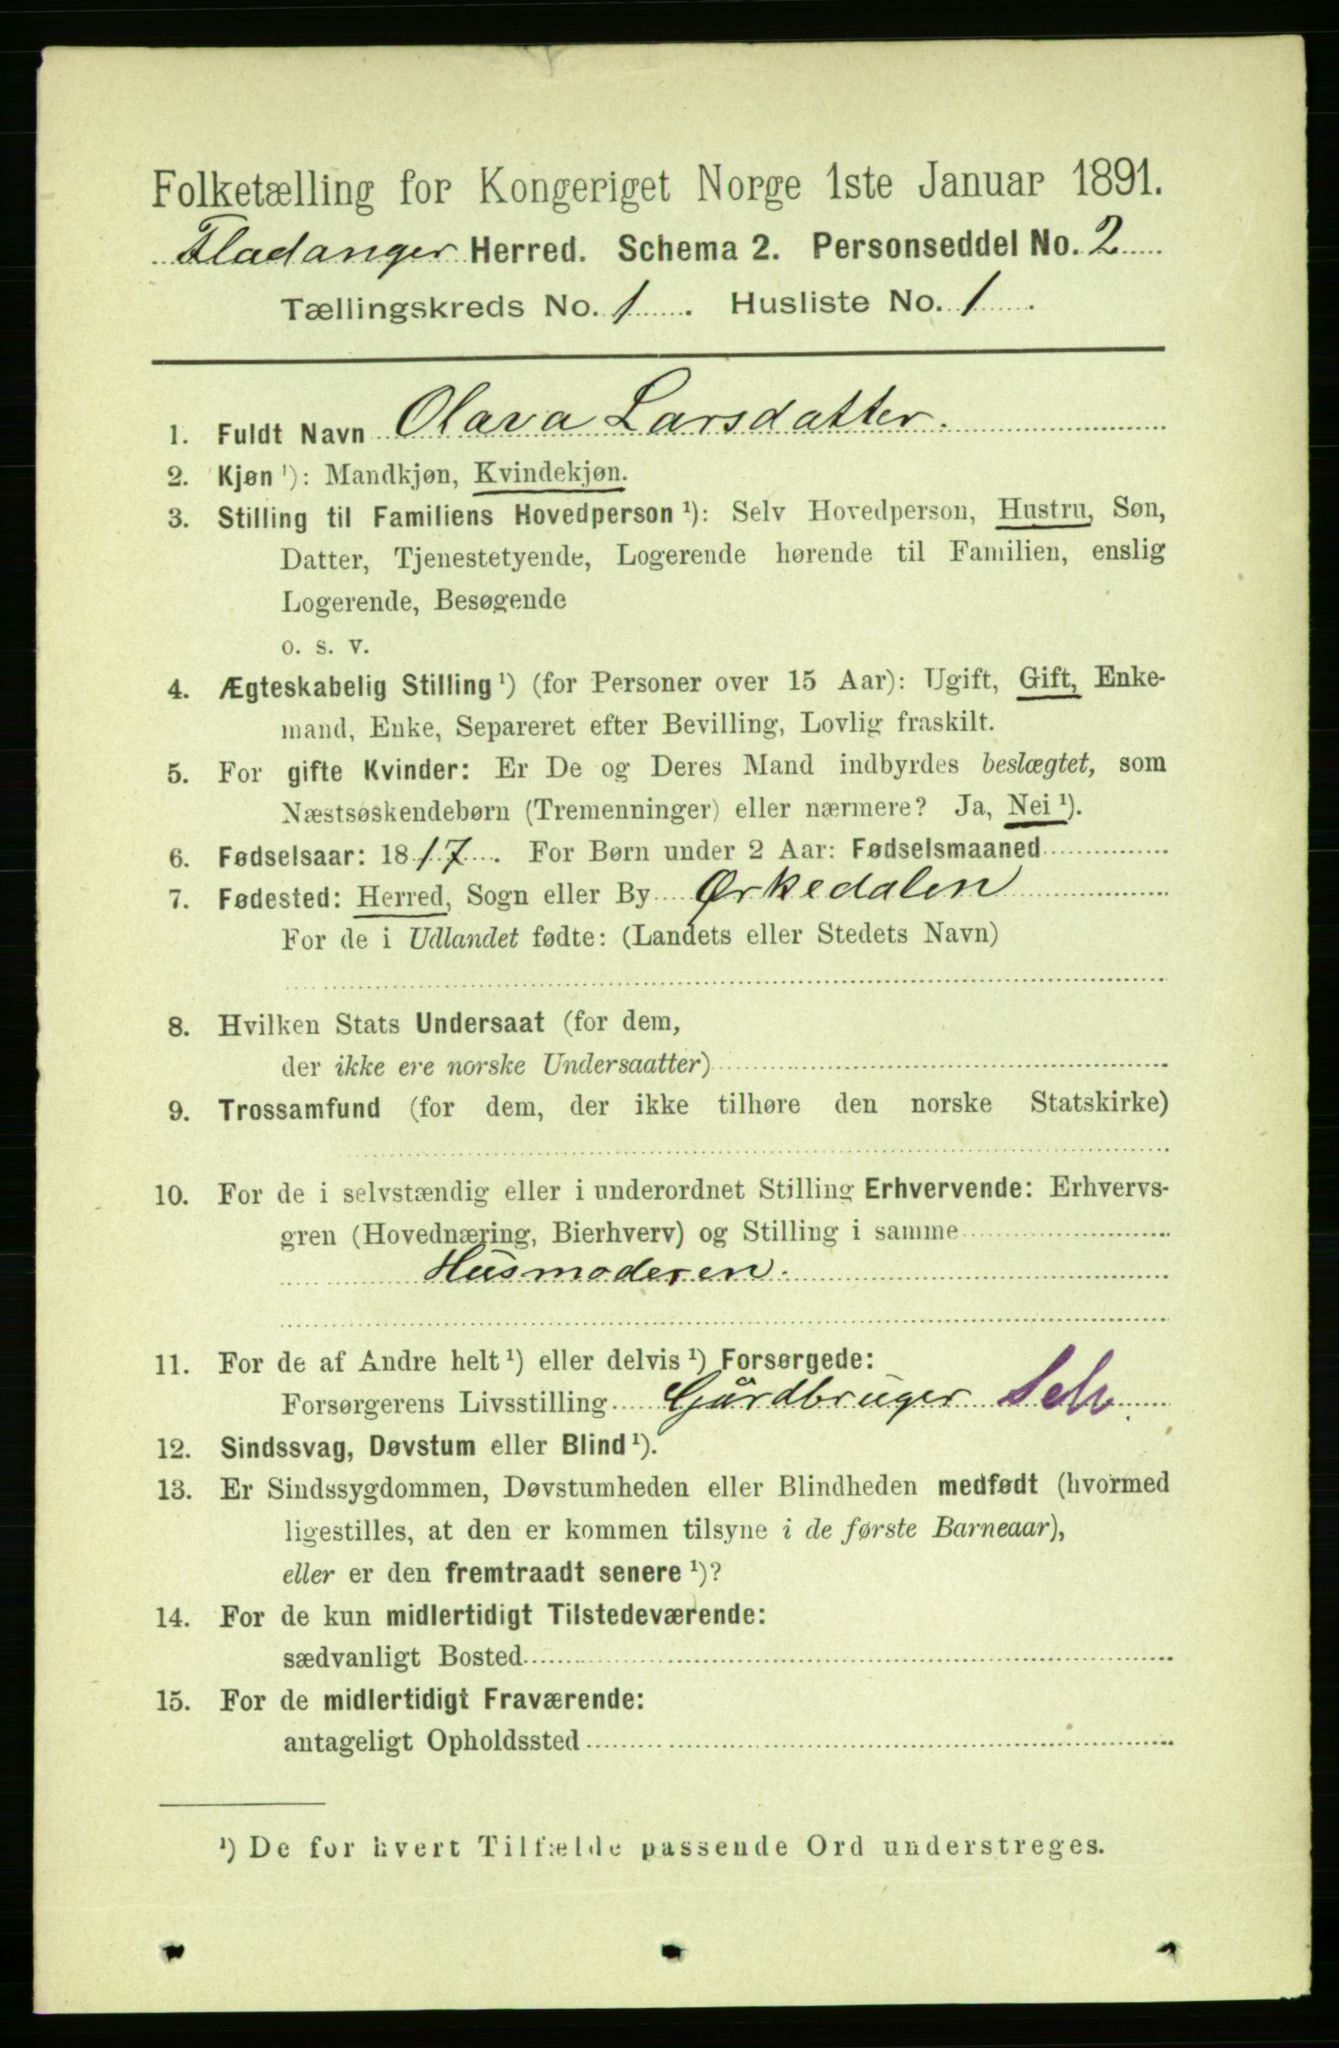 Folketælling for Kongeriget Norge 1ste Januar 1891.
Fladanger Herred. Schema 2. Personseddel No. 2
Tællingskreds No. 1. Husliste No. 1.
1. Fuldt Navn Olava Larsdatter.
2. Kjøn ¹): Mandkjøn, Kvindekjøn.
3. Stilling til Familiens Hovedperson ¹): Selv Hovedperson, Hustru, Søn,
Datter, Tjenestetyende, Logerende hørende til Familien, enslig
Logerende, Besøgende
o. s. v.
4. Ægteskabelig Stilling ¹) (for Personer over 15 Aar): Ugift, Gift, Enke-
mand, Enke, Separeret efter Bevilling, Lovlig fraskilt.
5. For gifte Kvinder: Er De og Deres Mand indbyrdes beslægtet, som
Næstsøskendebørn (Tremenninger) eller nærmere? Ja, Nei ¹).
6. Fødselsaar: 1817. For Børn under 2 Aar: Fødselsmaaned
7. Fødested: Herred, Sogn eller By Ørkedalen
For de i Udlandet fødte: (Landets eller Stedets Navn)
8. Hvilken Stats Undersaat (for dem,
der ikke ere norske Undersaatter)
9. Trossamfund (for dem, der ikke tilhøre den norske Statskirke)
10. For de i selvstændig eller i underordnet Stilling Erhvervende: Erhvervs-
gren (Hovednæring, Bierhverv) og Stilling i samme
Husmoderen.
11. For de af Andre helt ¹) eller delvis ¹) Forsørgede:
Forsørgerens Livsstilling Gårdbruger Selv
12. Sindssvag, Døvstum eller Blind ¹).
13. Er Sindssygdommen, Døvstumheden eller Blindheden medfødt (hvormed
ligestilles, at den er kommen tilsyne i de første Barneaar),
eller er den fremtraadt senere ¹)?
14. For de kun midlertidigt Tilstedeværende:
sædvanligt Bosted
15. For de midlertidigt Fraværende:
antageligt Opholdssted
¹) De for hvert Tilfælde passende Ord understreges.